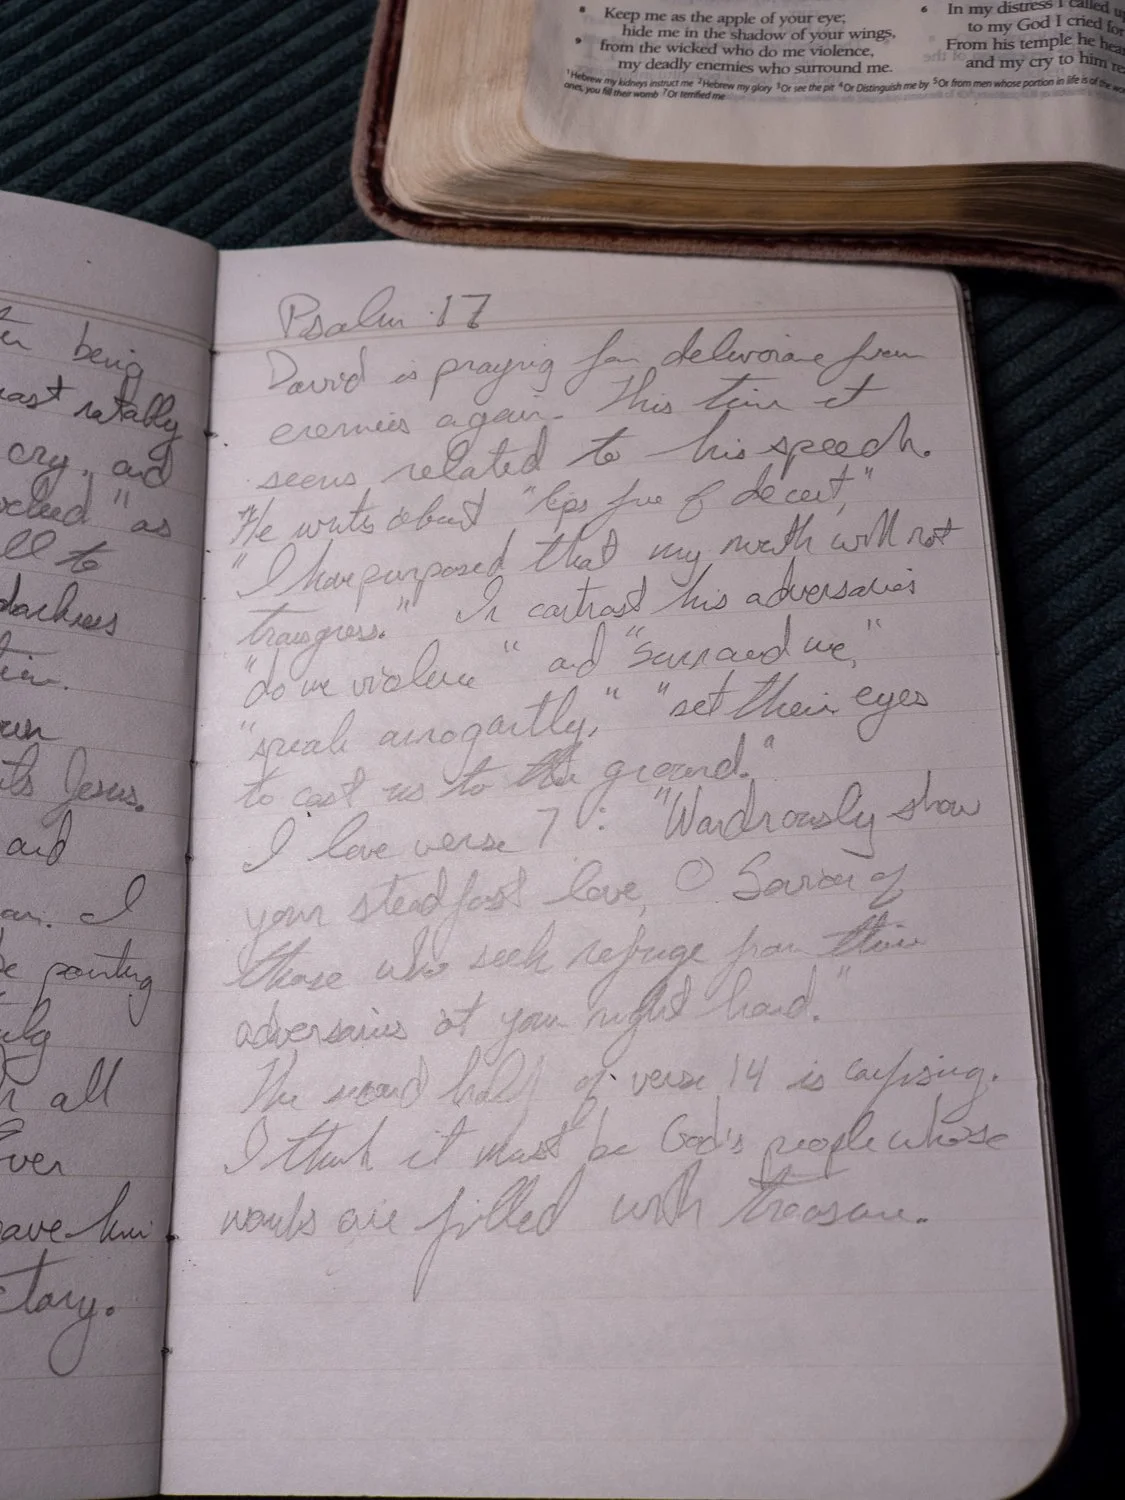 8 Keep me as the apple of your eye;
hide me in the shadow of your wings,
9 from the wicked who do me violence,
my deadly enemies who surround me.
6 In my distress I called u
to my God I cried for
From his temple he hea
and my cry to him re
1Hebrew my kidneys instruct me 2Hebrew my glory 3Or see the pit 4Or Distinguish me by 5Or from men whose portion in life is of the wo
ones, you fill their womb 7Or terrified me
being
notably
cry, and
" as
ll to
darkness
Jesus.
and
I
pointing
all
ver
ave him
tory.
Psalm 17
David is praying for deliverance from
enemies again. This time it
seems related to his speech.
He writes about "lips free of deceit,"
"I have purposed that my mouth will not
transgress." In contrast his adversaries
"do me violence" and "surround me,"
"speak arrogantly," "set their eyes
to cast us to the ground."
I love verse 7: "Wondrously show
your steadfast love, O Savior of
those who seek refuge from their
adversaries at your right hand."
The second half of verse 14 is confusing.
I think it must be God's people whose
wombs are filled with treasure.